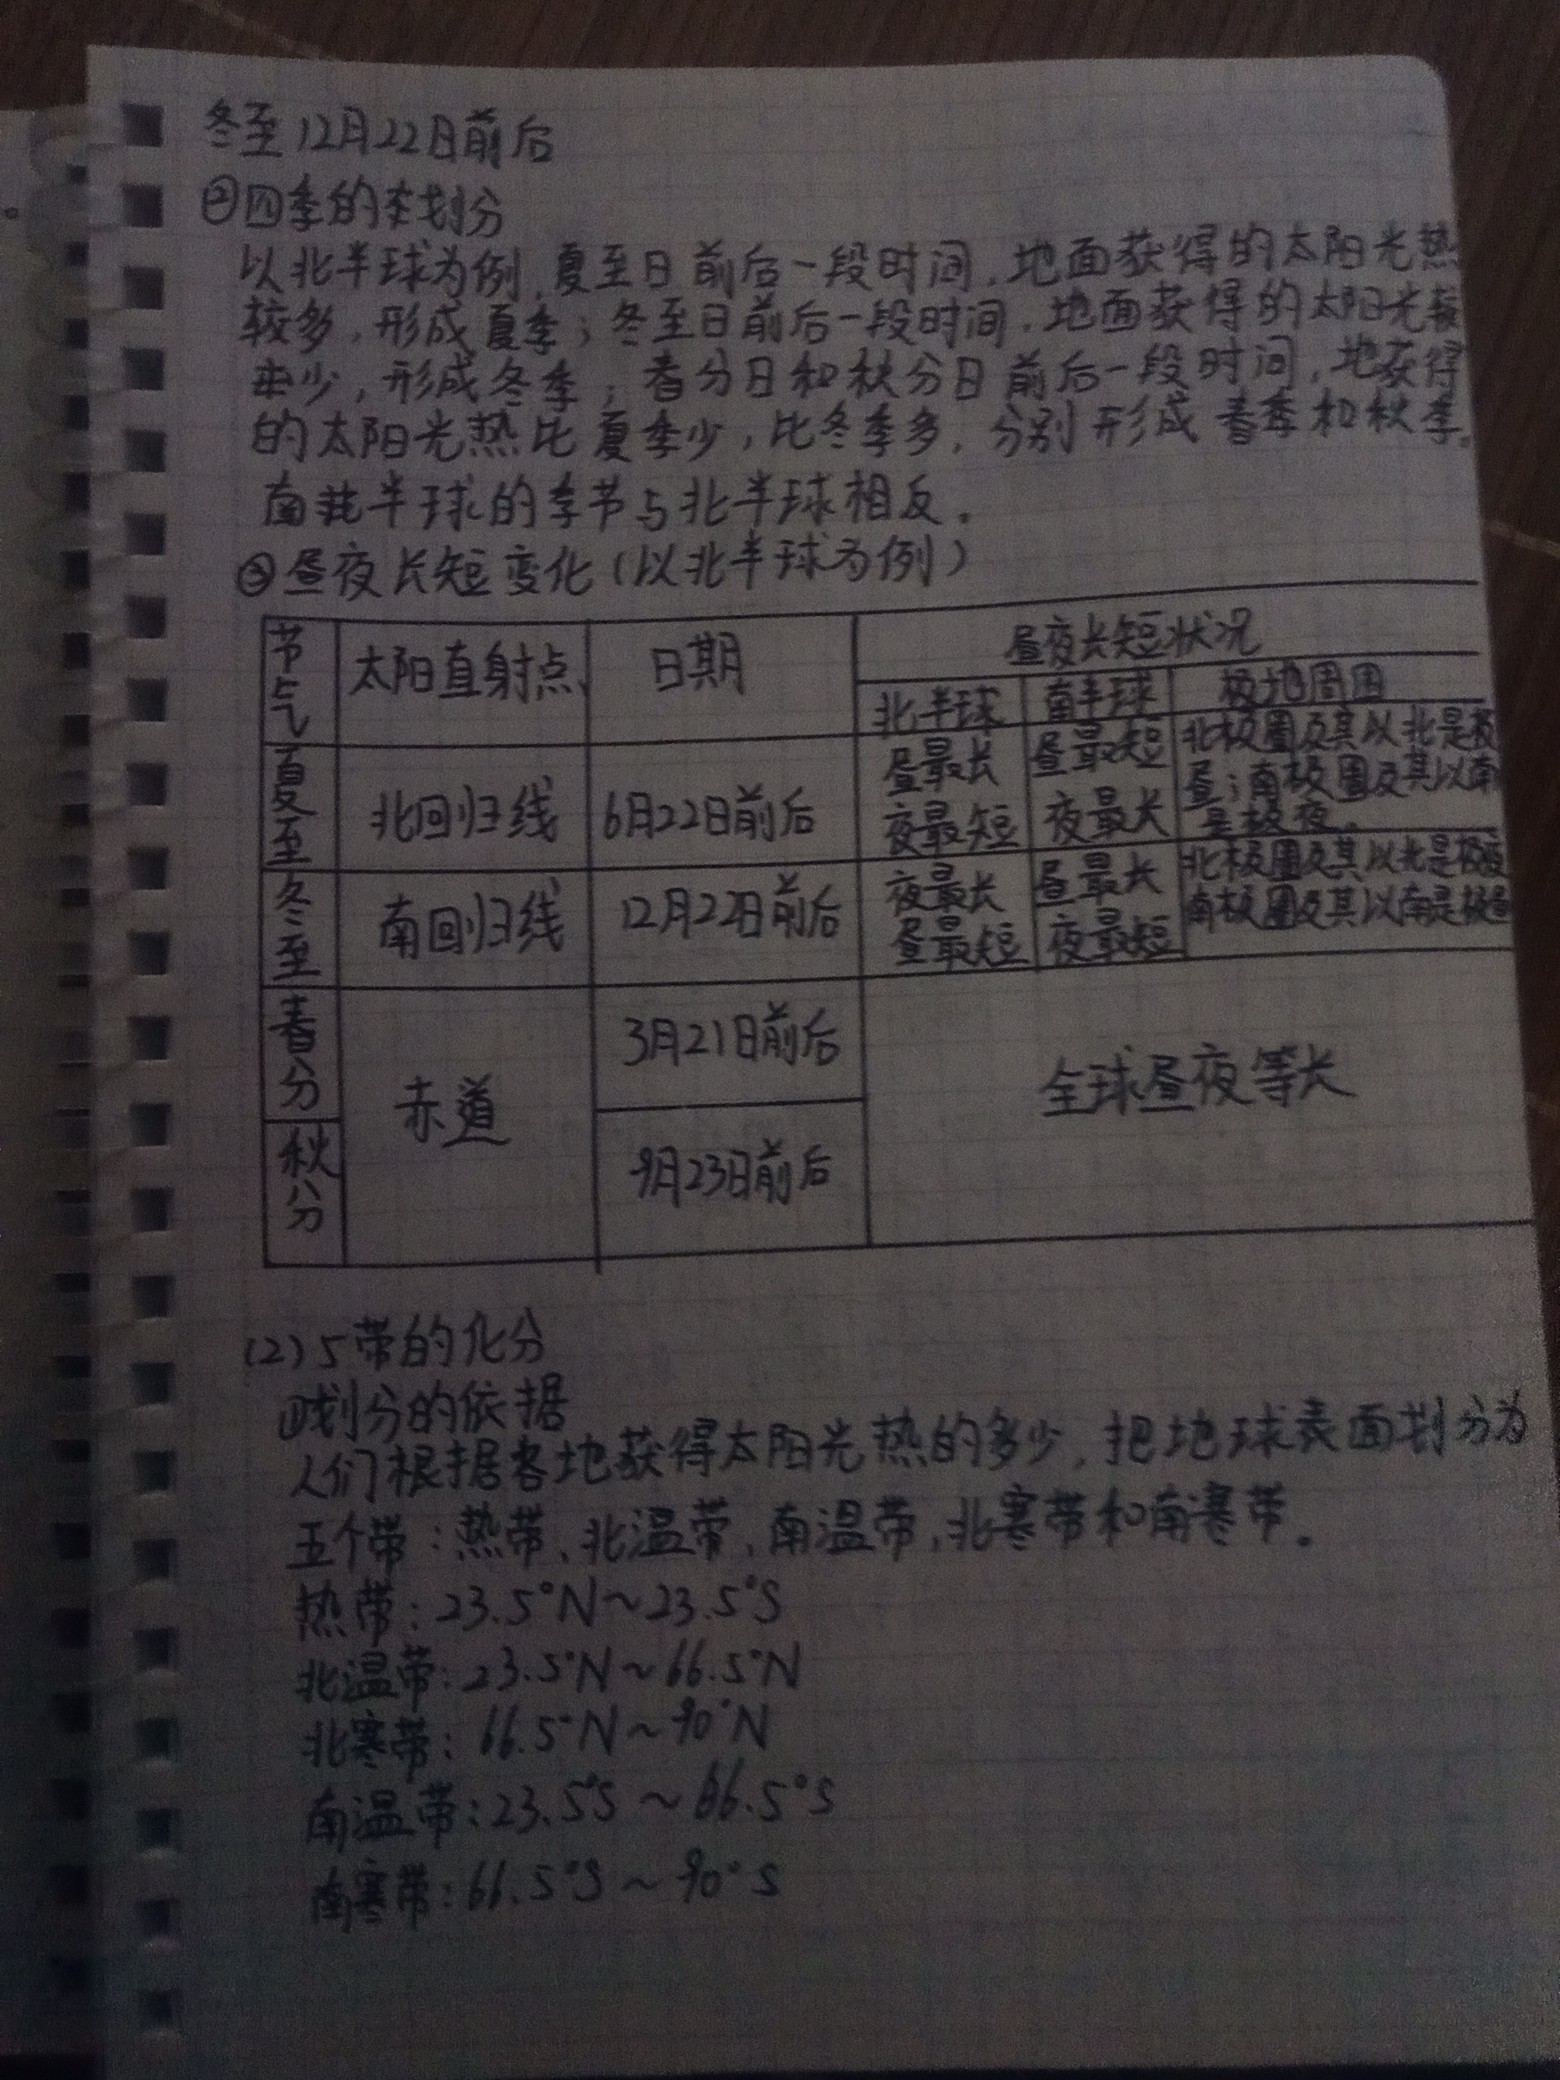 冬至12月22日前后
②四季的划分
以北半球为例,夏至日前后一段时间,地面获得的太阳光热
较多,形成夏季;冬至日前后一段时间,地面获得的太阳光较
少,形成冬季;春分日和秋分日前后一段时间,地获得
的太阳光热比夏季少,比冬季多,分别形成春季和秋季。
南半球的季节与北半球相反。
③昼夜长短变化(以北半球为例)
节气 太阳直射点 日期 昼夜长短状况
北半球 南半球 极地周围
夏至 北回归线 6月22日前后
昼最长 夜最短
昼最短 夜最长
北极圈及其以北是极
昼;南极圈及其以南
是极夜。
冬至 南回归线 12月22日前后
夜最长 昼最短
昼最长 夜最短
北极圈及其以北是极夜
南极圈及其以南是极昼
春分 赤道 3月21日前后 全球昼夜等长
秋分 9月23日前后
(2)5带的化分
①划分的依据
人们根据各地获得太阳光热的多少,把地球表面划分为
五个带:热带、北温带、南温带,北寒带和南寒带。
热带:23.5°N~23.5°S
北温带:23.5°N~66.5°N
北寒带:66.5°N~90°N
南温带:23.5°S~66.5°S
南寒带:66.5°S~90°S